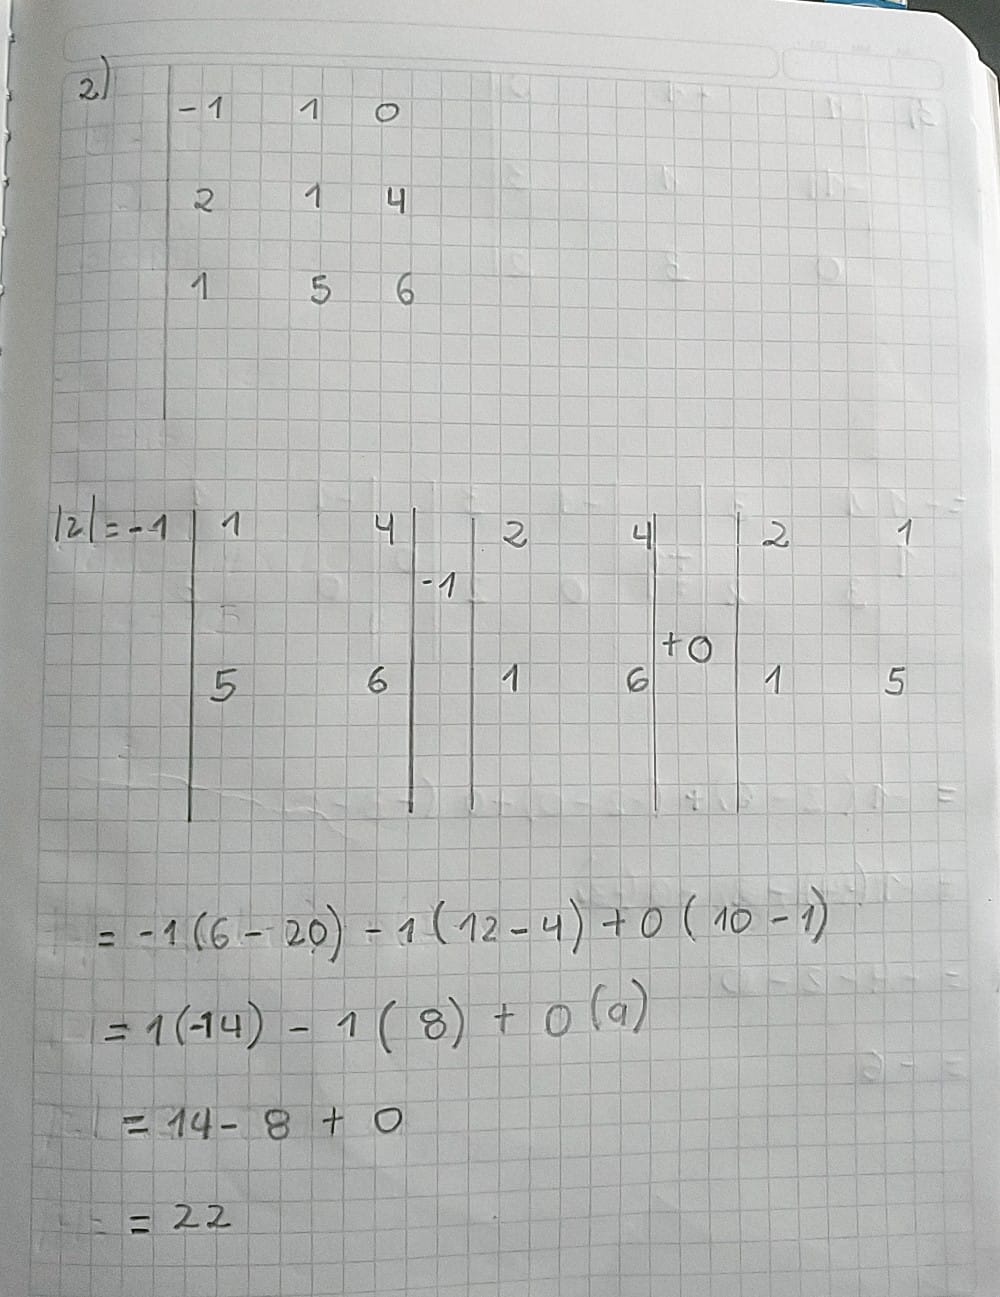 2)
-1 1 0
2 1 4
1 5 6
|2| = -1 | 1 4 | -1 | 2 4 | +0 | 2 1
5 6 1 6 1 5
= -1(6 - 20) - 1(12 - 4) + 0(10 - 1)
= 1(-14) - 1(8) + 0(9)
= 14 - 8 + 0
= 22